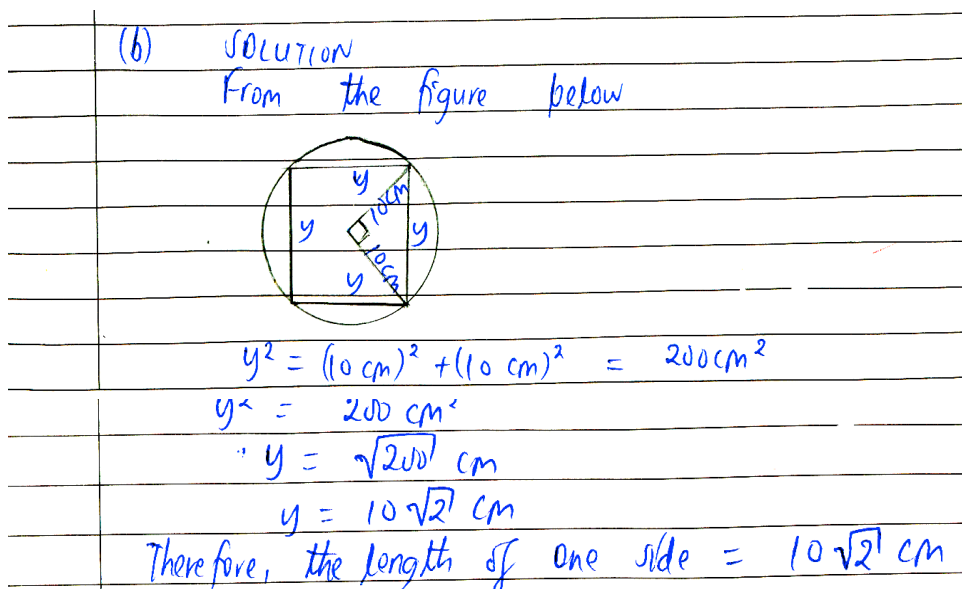 (b) SOLUTION
From the figure below
y
10cm
y
y
10cm
y
y² = (10 cm)² + (10 cm)² = 200cm²
y² = 200 cm²
y = √200 cm
y = 10√2 cm
Therefore, the length of one side = 10√2 cm